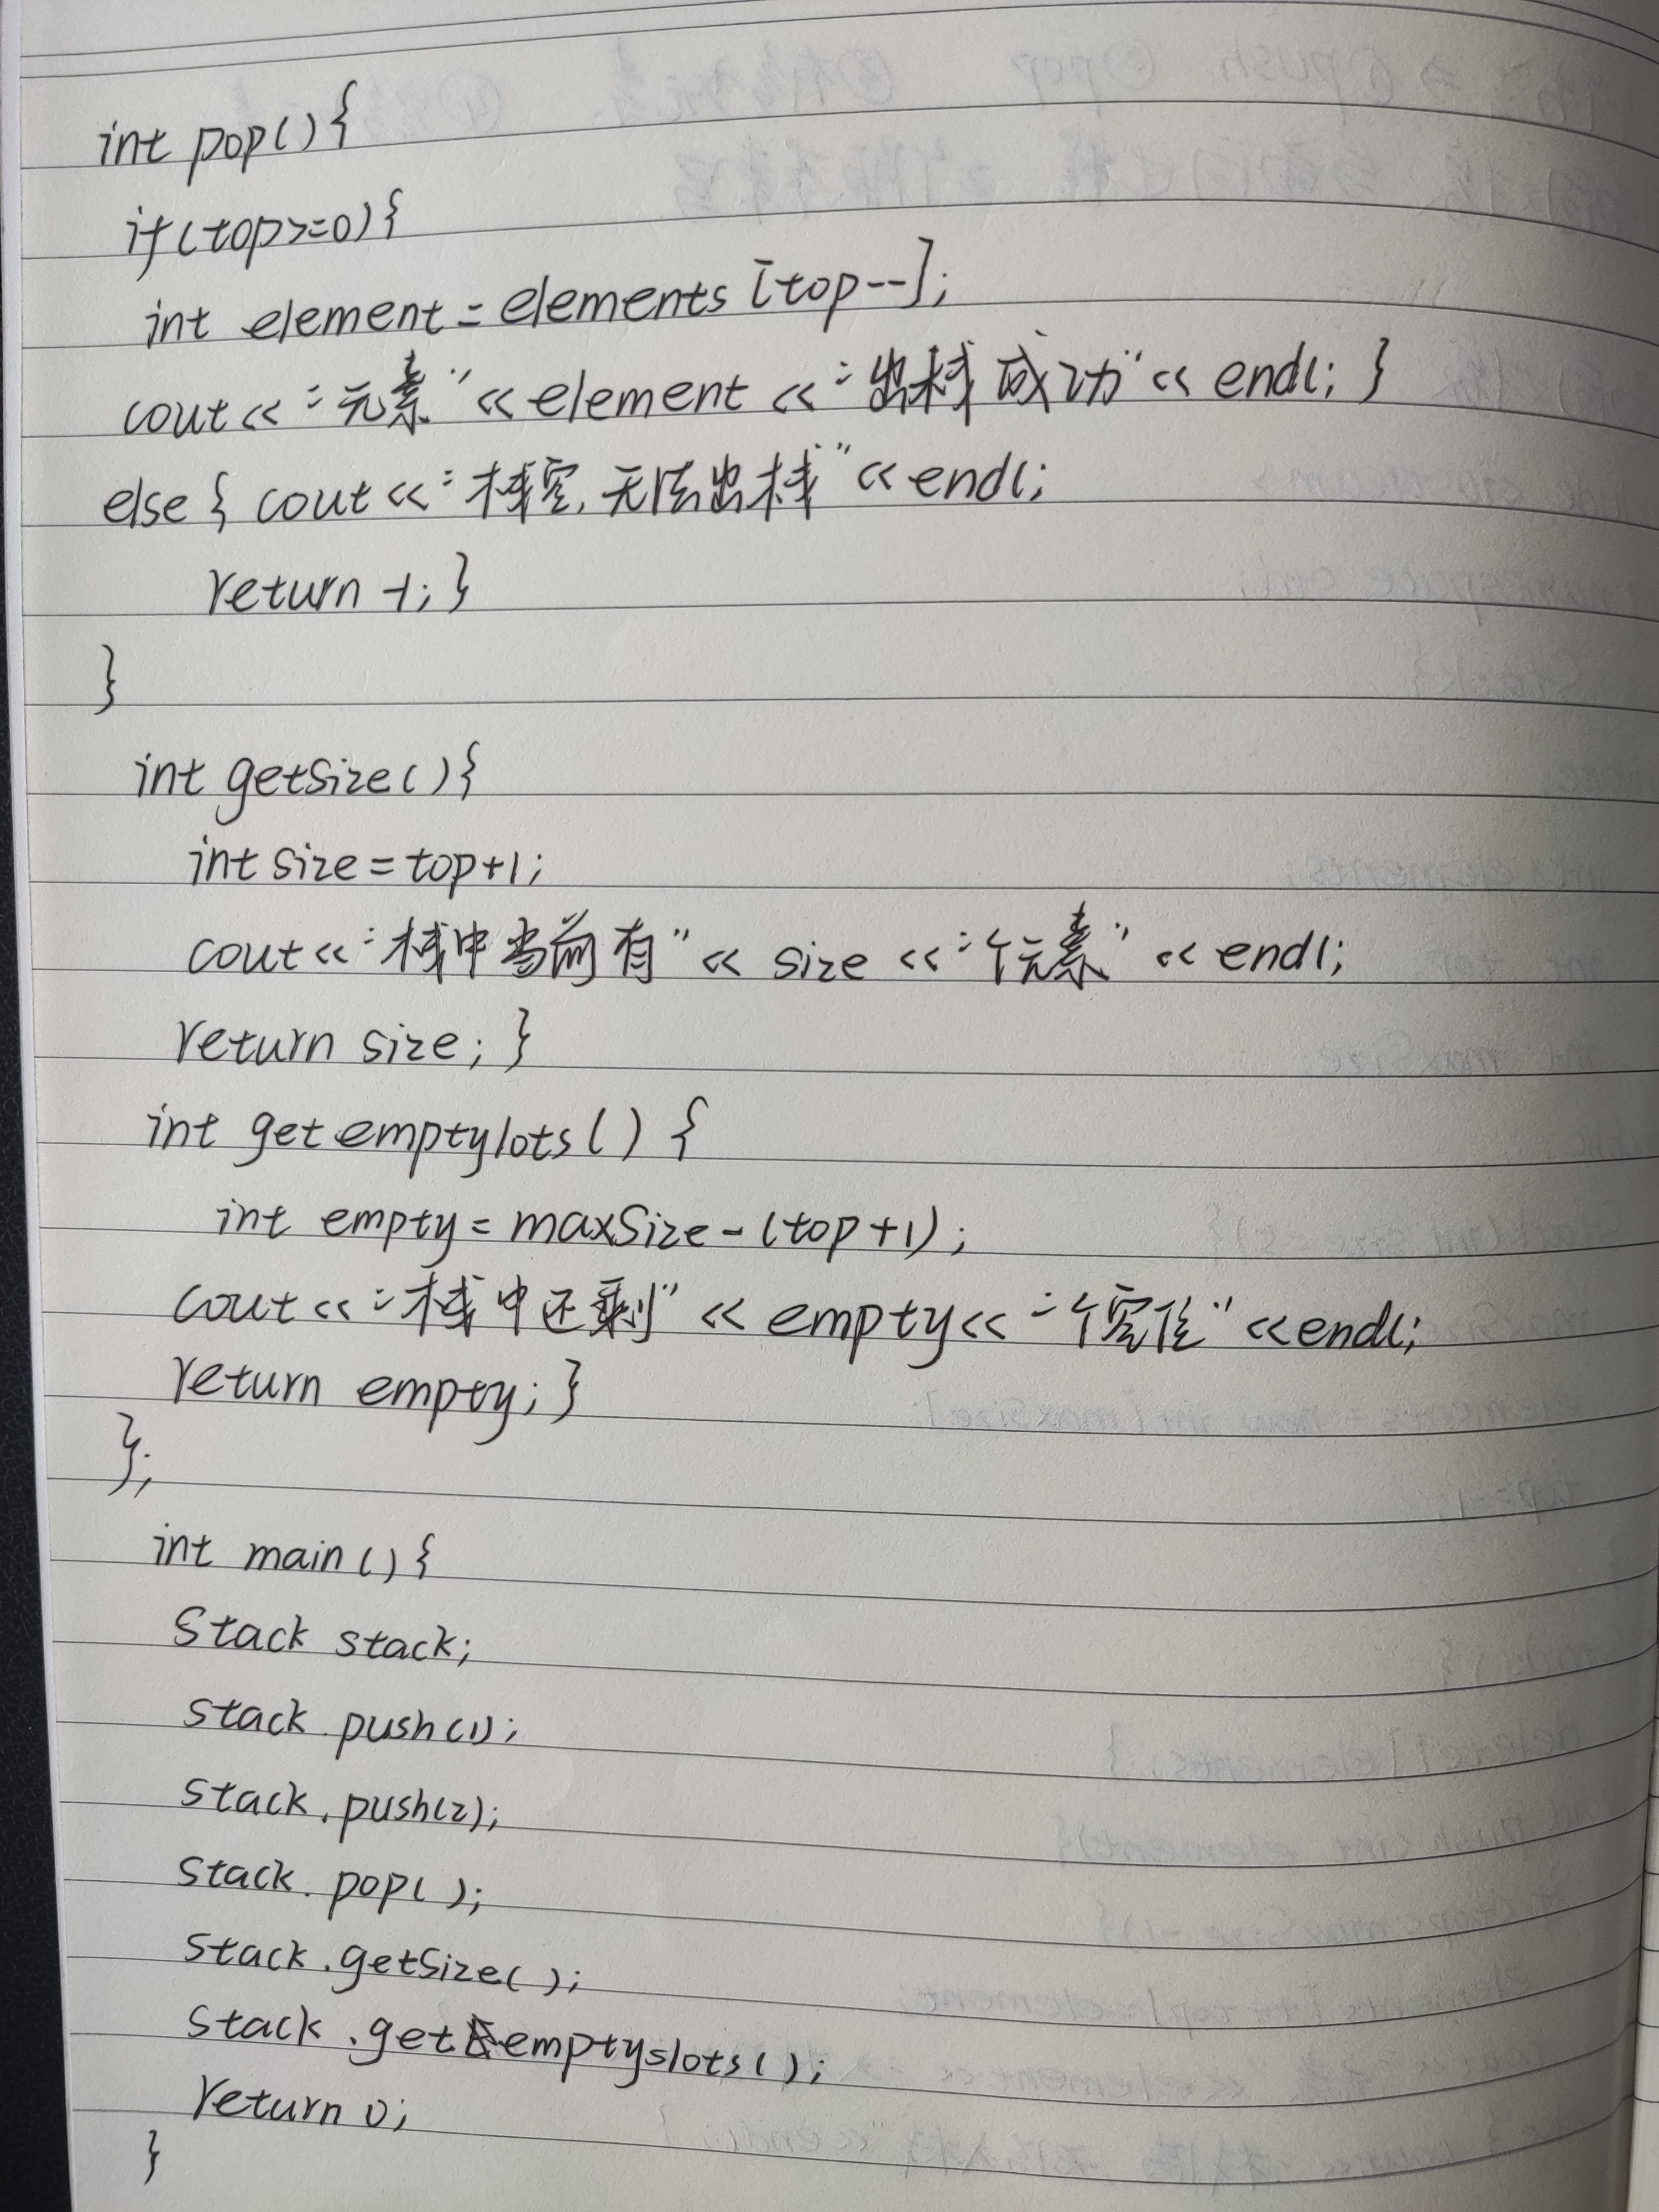 int pop(){
if(top>=0){
int element=elements[top--];
cout<<"元素"<<element<<"出栈成功"<<endl;}
else{cout<<"栈空,无法出栈"<<endl;
return -1;}
}
int getSize(){
int size=top+1;
cout<<"栈中当前有"<<size<<"个元素"<<endl;
return size;}
int getemptylots(){
int empty=maxSize-(top+1);
cout<<"栈中还剩"<<empty<<"个空位"<<endl;
return empty;}
};
int main(){
Stack stack;
stack.push(1);
stack.push(2);
stack.pop();
stack.getSize();
stack.getemptyslots();
return 0;
}